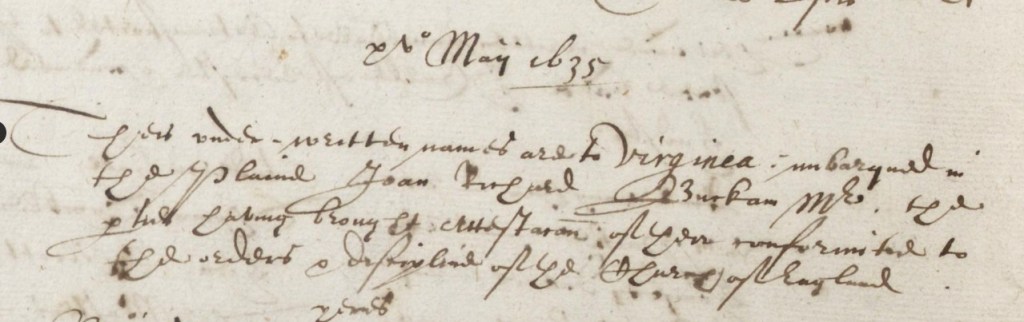 xvº Maij 1635
Theis under-written names are to Virginea: imbarqued in
the Plaine Joan Richard Buckam Mr. the
p'ties having brought attestacon of their conformitie to
the orders & discipline of the Church of England
yeres